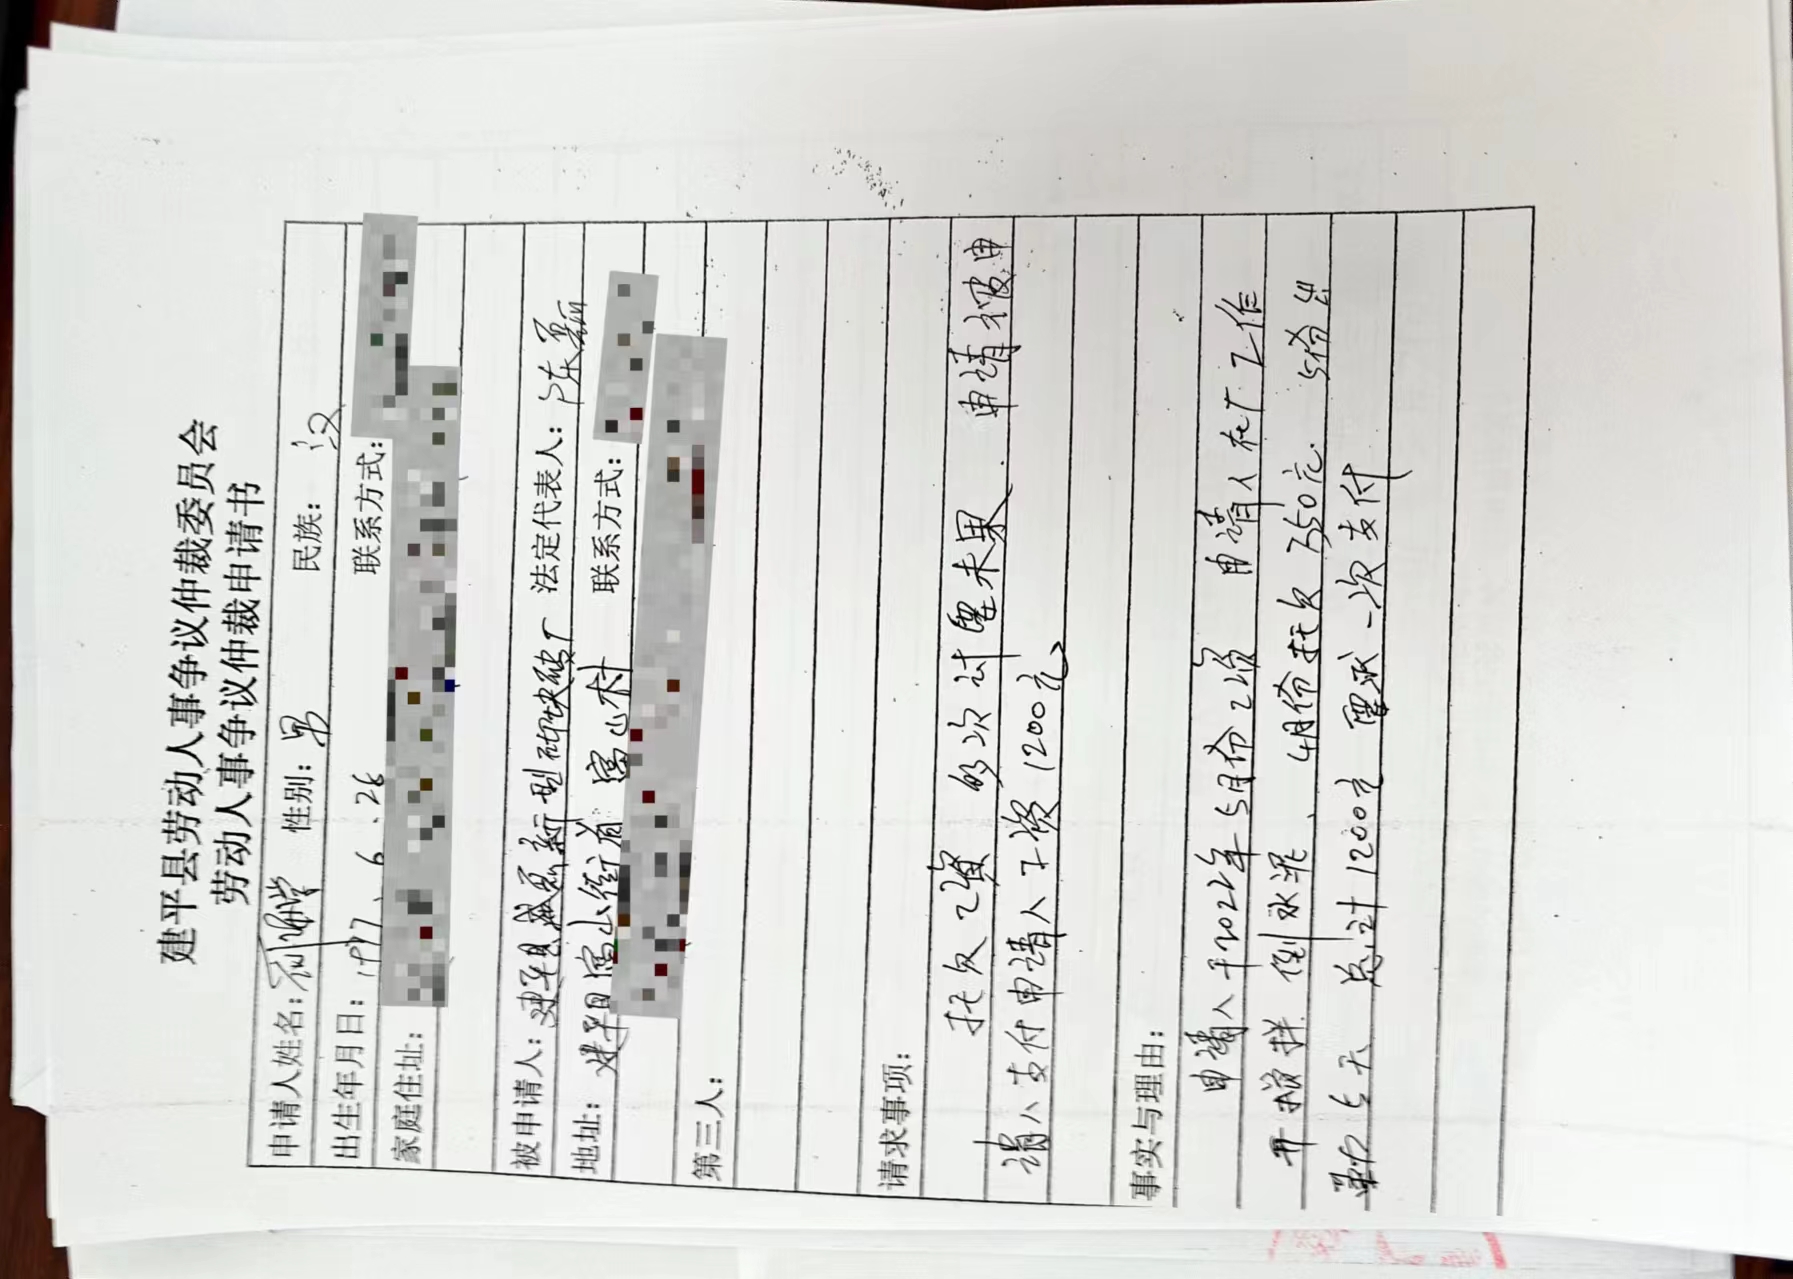 建平县劳动人事争议仲裁委员会
劳动人事争议仲裁申请书
申请人姓名：刘海学 性别：男 民族：汉
出生年月日：1997.6.26 联系方式：
家庭住址：
被申请人：建平县 新型砌块砖厂 法定代表人：陈
地址：建平县富山街道富山村 联系方式：
第三人：
请求事项：
托欠工资 多次讨要未果. 申请被申
请人支付申请人工资1200元
事实与理由：
申请人于2022年5月份2 申请人在厂工作
开搅拌. 倒水泥、4月份托欠350元. 5份出
勤5天 总计1200元 要求一次支付